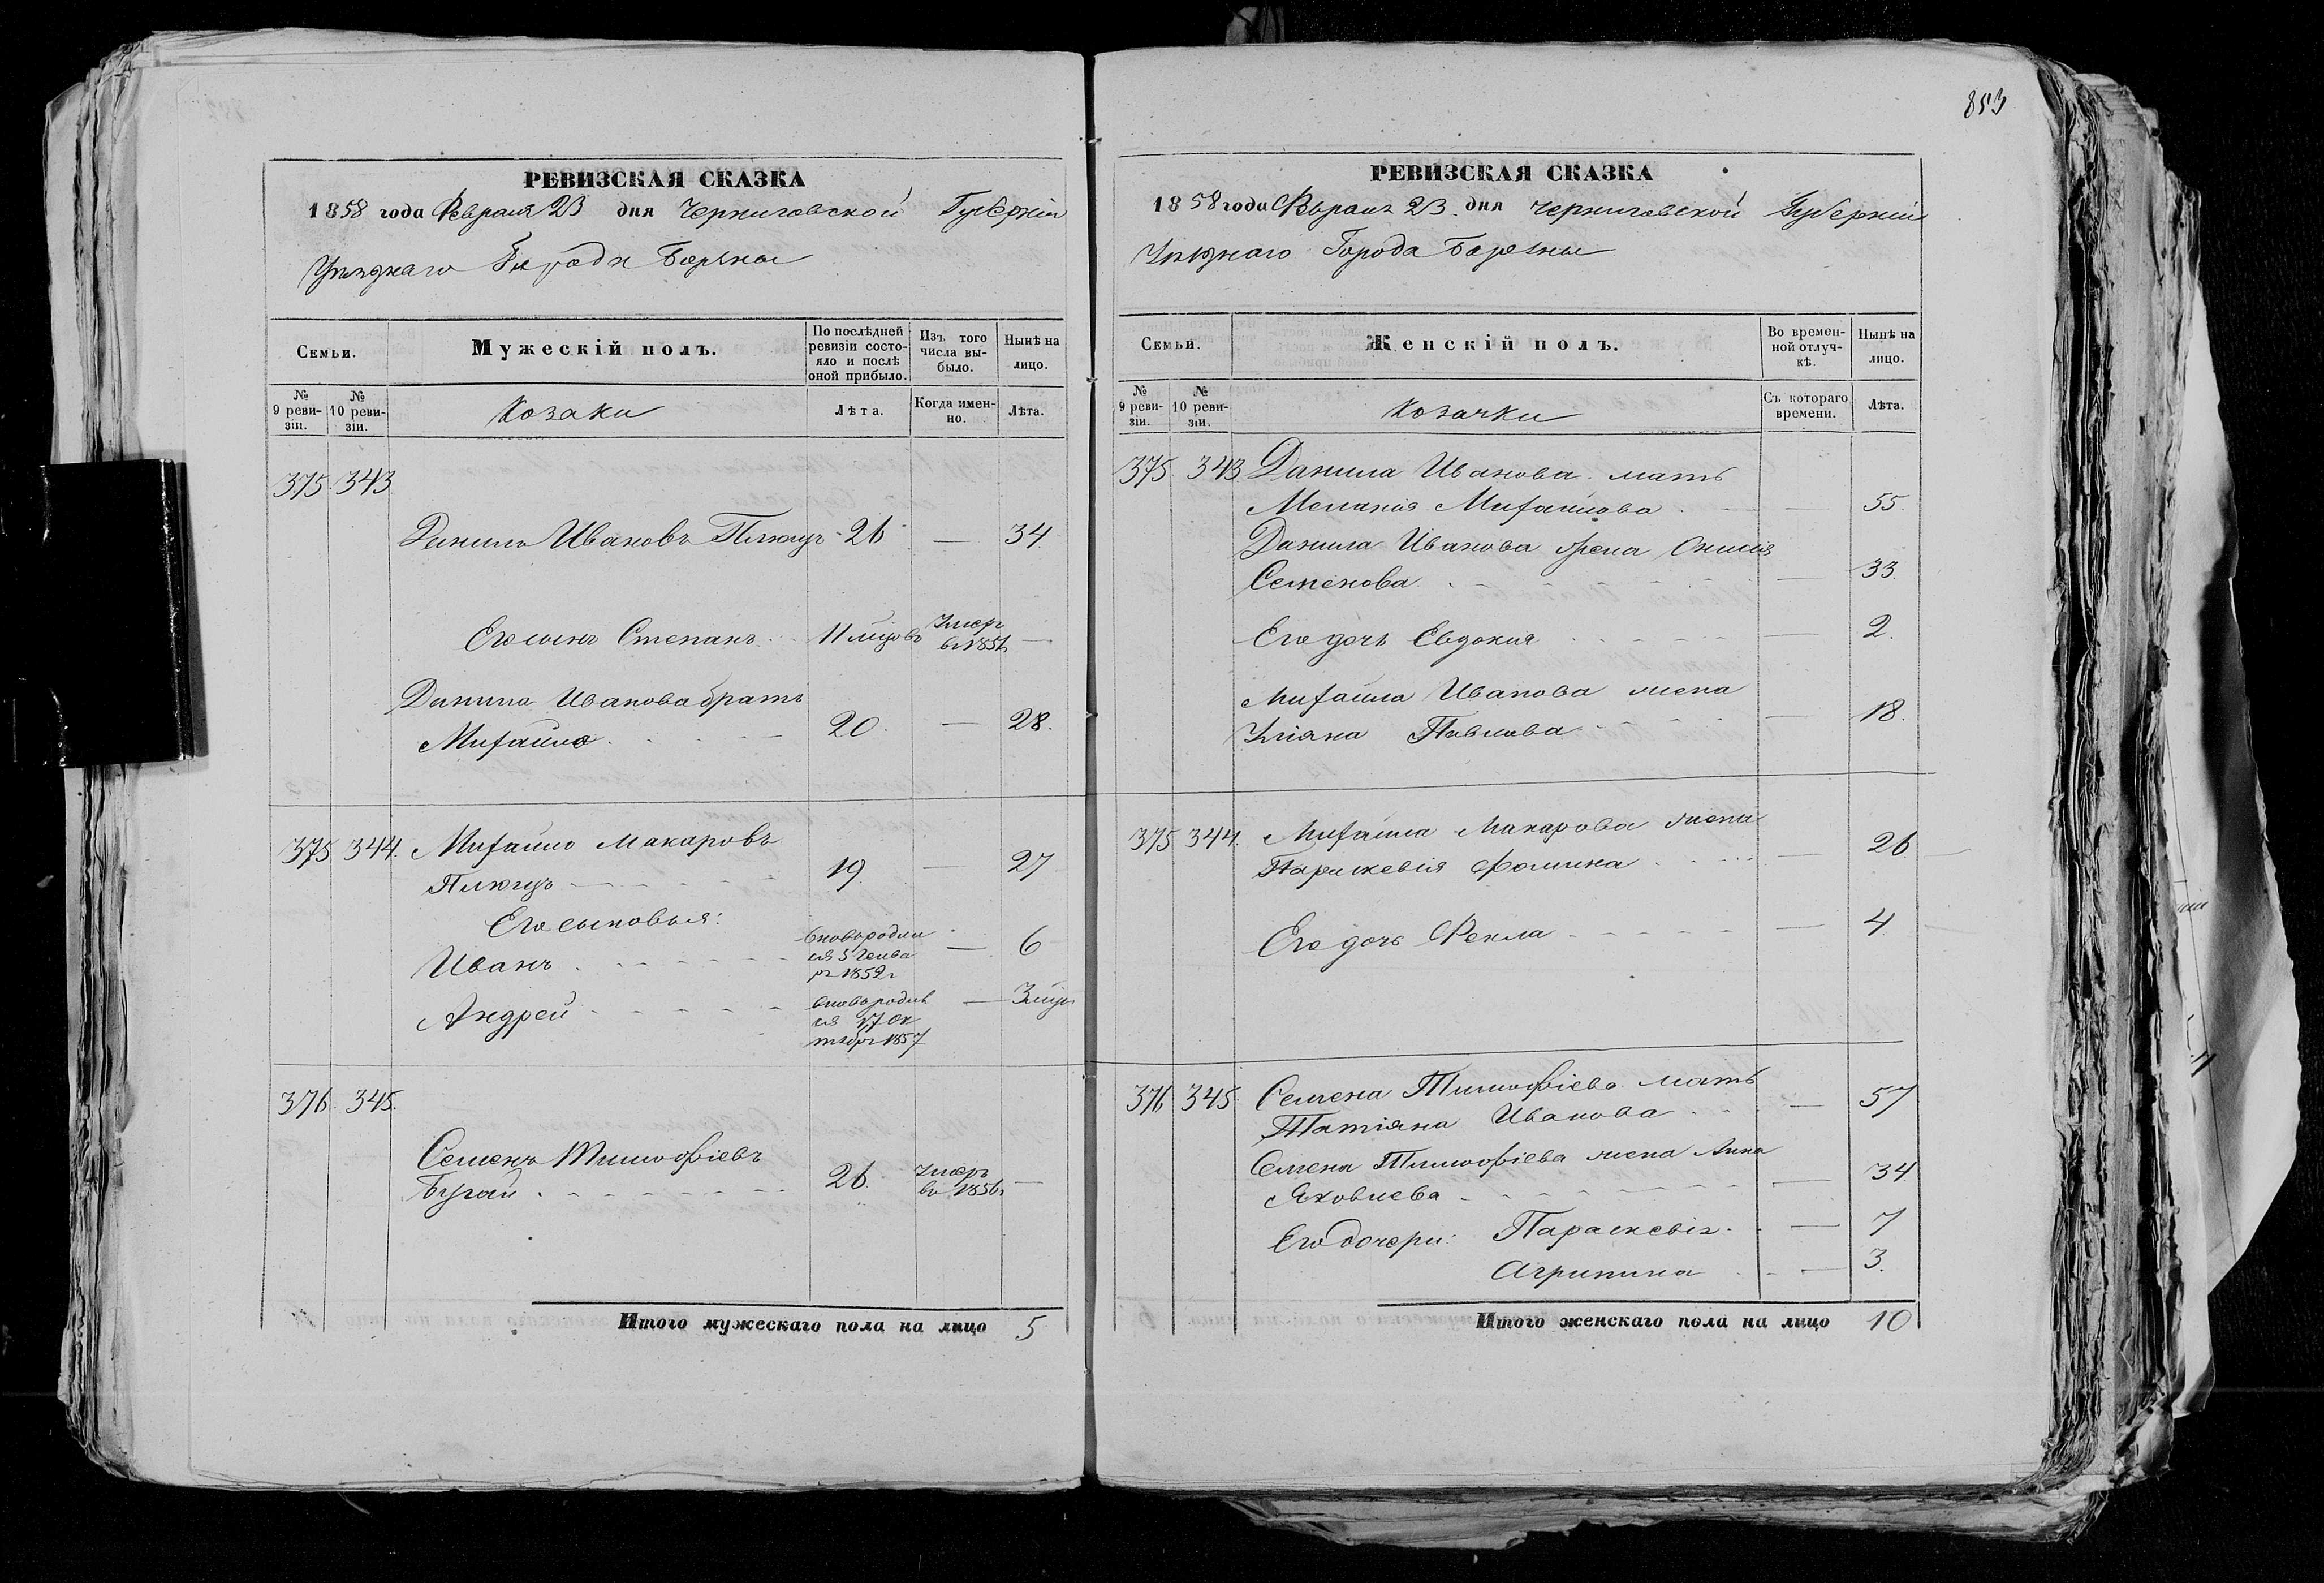 853
РЕВИЗСКАЯ СКАЗКА
1858 года Февраля 23 дня Черниговской Губерніи
Уѣзднаго Города Березны
Семьи.
Мужескій полъ.
По послѣдней ревизіи состояло и послѣ оной прибыло.
Изъ того числа выбыло.
Нынѣ на лицо.
№ 9 ревизіи.
№ 10 ревизіи.
Козаки
Лѣта.
Когда именно.
Лѣта.
375 343
Данило Ивановъ 26 — 34
Его сынъ Степанъ 11 мѣцовъ Умеръ въ 1851
Данила Иванова братъ
Михайло 20 — 28.
375 344. Михайло Макаровъ
19 — 27
Его сыновья:
Иванъ вновьродился 5 Генваря 1852 — 6
Андрей вновьродился 17 Октября 1857 — 3 мѣц
376 345.
Семенъ Тимофіевъ
Бугай 26 Умеръ въ 1856 —
Итого мужескаго пола на лицо 5
РЕВИЗСКАЯ СКАЗКА
1858 года Февраля 23 дня Черниговской Губерніи
Уѣзднаго Города Березны
Семьи.
Женскій полъ.
Во временной отлучкѣ.
Нынѣ на лицо.
№ 9 ревизіи.
№ 10 ревизіи.
Козачки
Съ котораго времени.
Лѣта.
375 343 Данила Иванова мать
Меланія Михайлова — 55
Данила Иванова жена Онисія
Семенова 33
Его дочь Евдокія 2.
Михайла Иванова жена
Уліяна Павлова — 18.
375 344. Михайла Макарова жена
Параскевія Фомина — 26
Его дочь Фекла — 4
376 345 Семена Тимофіева мать
Татіяна Иванова — 57
Семена Тимофіева жена Анна
Яковлева — 34
Его дочери: Параскевія — 7
Агрипина — 3.
Итого женскаго пола на лицо 10